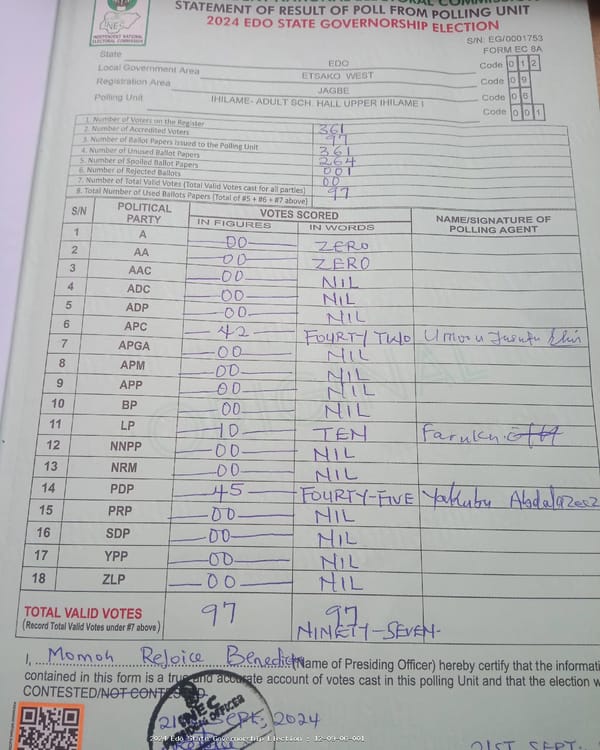 INDEPENDENT NATIONAL ELECTORAL COMMISSION
STATEMENT OF RESULT OF POLL FROM POLLING UNIT
2024 EDO STATE GOVERNORSHIP ELECTION
S/N: EG/0001753
FORM EC 8A
State EDO Code 0 1 2
Local Government Area ETSAKO WEST Code 0 9
Registration Area JAGBE Code 0 6
Polling Unit IHILAME- ADULT SCH. HALL UPPER IHILAME I Code 0 0 1
1. Number of Voters on the Register 361
2. Number of Accredited Voters 97
3. Number of Ballot Papers Issued to the Polling Unit 361
4. Number of Unused Ballot Papers 264
5. Number of Spoiled Ballot Papers 001
6. Number of Rejected Ballots 00
7. Number of Total Valid Votes (Total Valid Votes cast for all parties) 97
8. Total Number of Used Ballots Papers (Total of #5 + #6 + #7 above)
S/N POLITICAL PARTY VOTES SCORED NAME/SIGNATURE OF POLLING AGENT
IN FIGURES IN WORDS
1 A 00 ZERO
2 AA 00 ZERO
3 AAC 00 NIL
4 ADC 00 NIL
5 ADP 00 NIL
6 APC 42 FOURTY TWO
7 APGA 00 NIL
8 APM 00 NIL
9 APP 00 NIL
10 BP 00 NIL
11 LP 10 TEN Faruku
12 NNPP 00 NIL
13 NRM 00 NIL
14 PDP 45 FOURTY-FIVE Yakubu Abdulazeez
15 PRP 00 NIL
16 SDP 00 NIL
17 YPP 00 NIL
18 ZLP 00 NIL
TOTAL VALID VOTES 97 97
(Record Total Valid Votes under #7 above) NINETY-SEVEN.
I, Momoh Rejoice Benedicta (Name of Presiding Officer) hereby certify that the informati
contained in this form is a true and accurate account of votes cast in this polling Unit and that the election w
CONTESTED/NOT CONTESTED.
21 SEPT, 2024
2024 Edo State Governorship Election - 12-09-06-001
21ST SEPT.